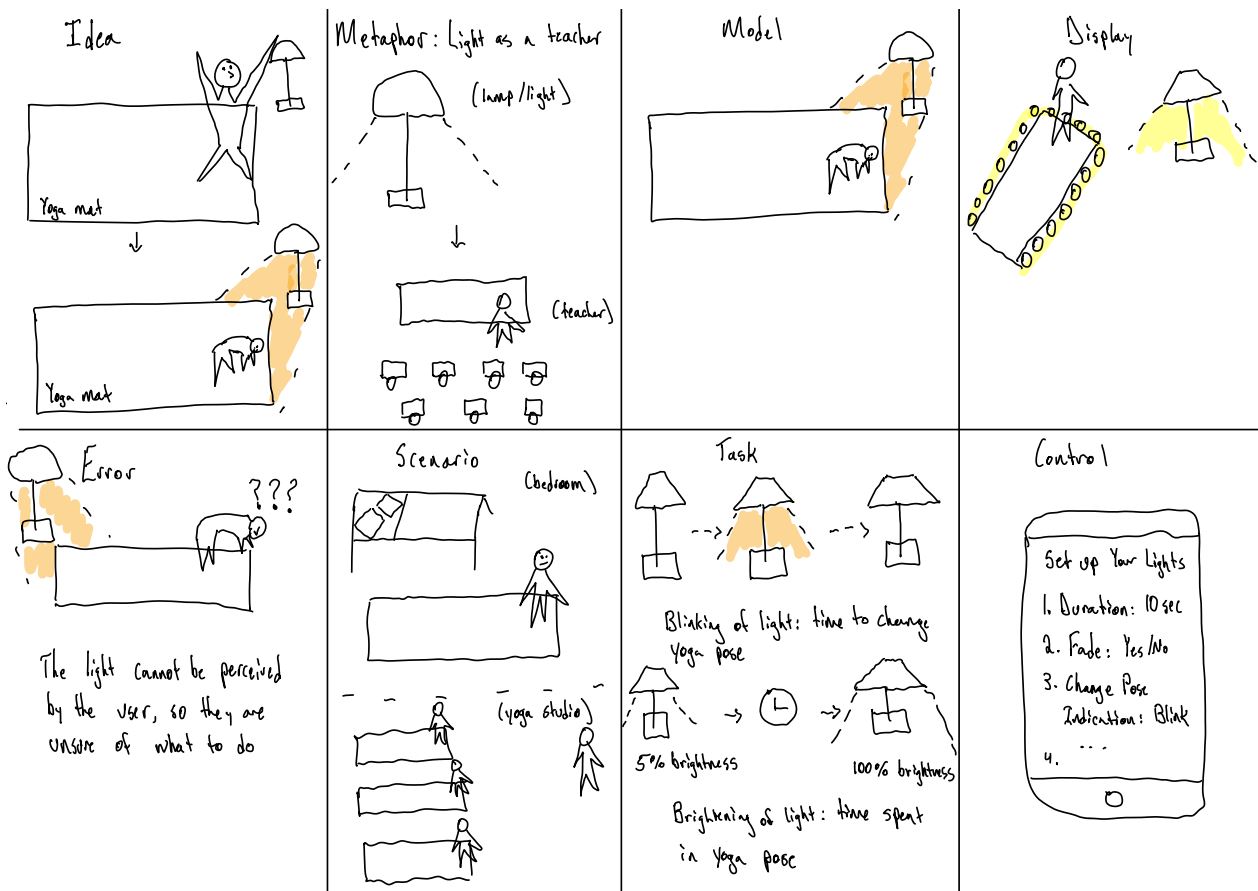 Idea
Yoga mat
Yoga mat
Metaphor: Light as a teacher
(lamp/light)
(teacher)
Model
Display
Error
???
The light cannot be perceived
by the user, so they are
unsure of what to do
Scenario
(bedroom)
(yoga studio)
Task
Blinking of light: time to change
Yoga pose
5% brightness
100% brightness
Brightening of light: time spent
in Yoga pose
Control
Set up Your Lights
1. Duration: 10 sec
2. Fade: Yes/No
3. Change Pose
Indication: Blink
...
4.